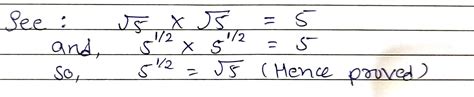 See : √5 × √5 = 5
and, 5^1/2 × 5^1/2 = 5
So, 5^1/2 = √5 (Hence proved)